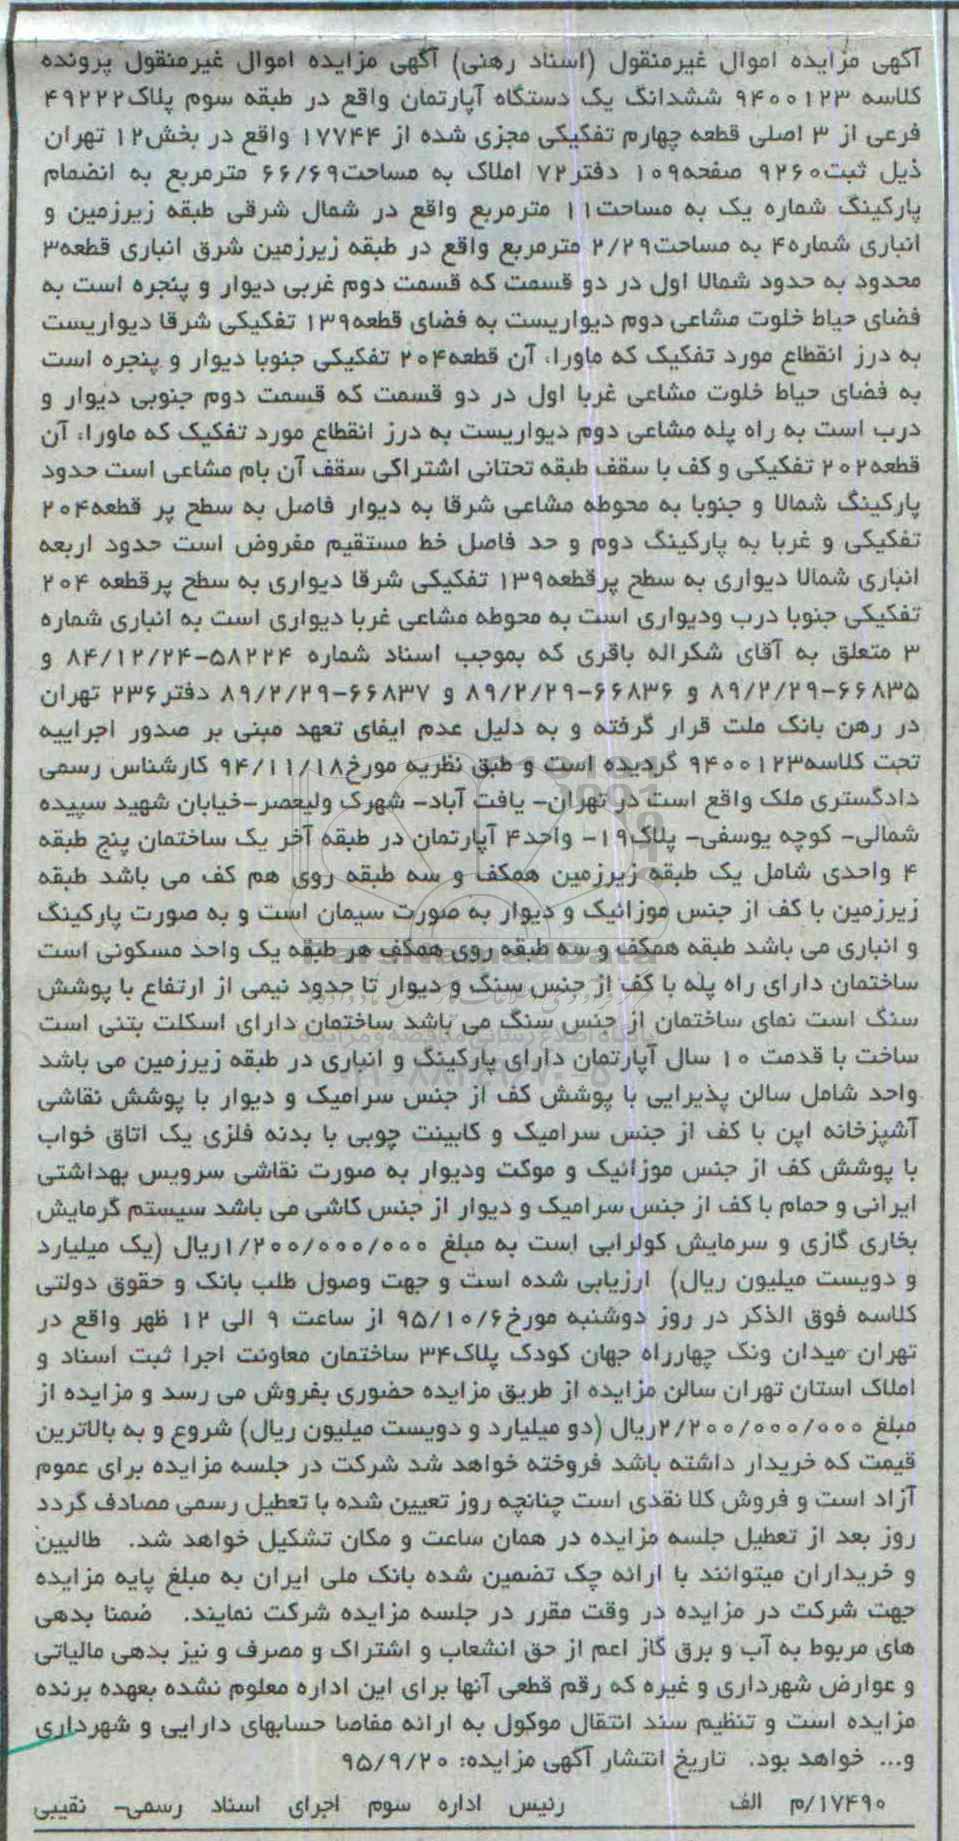 آگهی مزایده اموال غیرمنقول (اسناد رهنی) آگهی مزایده اموال غیرمنقول پرونده
کلاسه ۹۴۰۰۱۲۳ ششدانگ یک دستگاه آپارتمان واقع در طبقه سوم پلاک۴۹۲۲۲
فرعی از ۳ اصلی قطعه چهارم تفکیکی مجزی شده از ۱۷۷۴۴ واقع در بخش۱۲ تهران
ذیل ثبت۹۲۶۰ صفحه۱۰۹ دفتر۷۲ املاک به مساحت۶۶/۶۹ مترمربع به انضمام
پارکینگ شماره یک به مساحت۱۱ مترمربع واقع در شمال شرقی طبقه زیرزمین و
انباری شماره۴ به مساحت۲/۲۹ مترمربع واقع در طبقه زیرزمین شرق انباری قطعه۳
محدود به حدود شمالا اول در دو قسمت که قسمت دوم غربی دیوار و پنجره است به
فضای حیاط خلوت مشاعی دوم دیواریست به فضای قطعه۱۳۹ تفکیکی شرقا دیواریست
به درز انقطاع مورد تفکیک که ماوراء آن قطعه۲۰۴ تفکیکی جنوبا دیوار و پنجره است
به فضای حیاط خلوت مشاعی غربا اول در دو قسمت که قسمت دوم جنوبی دیوار و
درب است به راه پله مشاعی دوم دیواریست به درز انقطاع مورد تفکیک که ماوراء آن
قطعه۲۰۲ تفکیکی و کف با سقف طبقه تحتانی اشتراکی سقف آن بام مشاعی است حدود
پارکینگ شمالا و جنوبا به محوطه مشاعی شرقا به دیوار فاصل به سطح پر قطعه۲۰۴
تفکیکی و غربا به پارکینگ دوم و حد فاصل خط مستقیم مفروض است حدود اربعه
انباری شمالا دیواری به سطح پرقطعه۱۳۹ تفکیکی شرقا دیواری به سطح پرقطعه ۲۰۴
تفکیکی جنوبا درب ودیواری است به محوطه مشاعی غربا دیواری است به انباری شماره
۳ متعلق به آقای شکراله باقری که بموجب اسناد شماره ۵۸۲۲۴-۸۴/۱۲/۲۴ و
۶۶۸۳۵-۸۹/۲/۲۹ و ۶۶۸۳۶-۸۹/۲/۲۹ و ۶۶۸۳۷-۸۹/۲/۲۹ دفتر۲۳۶ تهران
در رهن بانک ملت قرار گرفته و به دلیل عدم ایفای تعهد مبنی بر صدور اجراییه
تحت کلاسه۹۴۰۰۱۲۳ گردیده است و طبق نظریه مورخ۹۴/۱۱/۱۸ کارشناس رسمی
دادگستری ملک واقع است در تهران- یافت آباد- شهرک ولیعصر-خیابان شهید سپیده
شمالی- کوچه یوسفی- پلاک۱۹- واحد۴ آپارتمان در طبقه آخر یک ساختمان پنج طبقه
۴ واحدی شامل یک طبقه زیرزمین همکف و سه طبقه روی هم کف می باشد طبقه
زیرزمین با کف از جنس موزائیک و دیوار به صورت سیمان است و به صورت پارکینگ
و انباری می باشد طبقه همکف و سه طبقه روی همکف هر طبقه یک واحد مسکونی است
ساختمان دارای راه پله با کف از جنس سنگ و دیوار تا حدود نیمی از ارتفاع با پوشش
سنگ است نمای ساختمان از جنس سنگ می باشد ساختمان دارای اسکلت بتنی است
ساخت با قدمت ۱۰ سال آپارتمان دارای پارکینگ و انباری در طبقه زیرزمین می باشد
واحد شامل سالن پذیرایی با پوشش کف از جنس سرامیک و دیوار با پوشش نقاشی
آشپزخانه اپن با کف از جنس سرامیک و کابینت چوبی با بدنه فلزی یک اتاق خواب
با پوشش کف از جنس موزائیک و موکت ودیوار به صورت نقاشی سرویس بهداشتی
ایرانی و حمام با کف از جنس سرامیک و دیوار از جنس کاشی می باشد سیستم گرمایش
بخاری گازی و سرمایش کولرابی است به مبلغ ۱/۲۰۰/۰۰۰/۰۰۰ریال (یک میلیارد
و دویست میلیون ریال) ارزیابی شده است و جهت وصول طلب بانک و حقوق دولتی
کلاسه فوق الذکر در روز دوشنبه مورخ۹۵/۱۰/۶ از ساعت ۹ الی ۱۲ ظهر واقع در
تهران میدان ونک چهارراه جهان کودک پلاک۳۴ ساختمان معاونت اجرا ثبت اسناد و
املاک استان تهران سالن مزایده از طریق مزایده حضوری بفروش می رسد و مزایده از
مبلغ ۲/۲۰۰/۰۰۰/۰۰۰ریال (دو میلیارد و دویست میلیون ریال) شروع و به بالاترین
قیمت که خریدار داشته باشد فروخته خواهد شد شرکت در جلسه مزایده برای عموم
آزاد است و فروش کلا نقدی است چنانچه روز تعیین شده با تعطیل رسمی مصادف گردد
روز بعد از تعطیل جلسه مزایده در همان ساعت و مکان تشکیل خواهد شد. طالبین
و خریداران میتوانند با ارائه چک تضمین شده بانک ملی ایران به مبلغ پایه مزایده
جهت شرکت در مزایده در وقت مقرر در جلسه مزایده شرکت نمایند. ضمنا بدهی
های مربوط به آب و برق گاز اعم از حق انشعاب و اشتراک و مصرف و نیز بدهی مالیاتی
و عوارض شهرداری و غیره که رقم قطعی آنها برای این اداره معلوم نشده بعهده برنده
مزایده است و تنظیم سند انتقال موکول به ارائه مفاصا حسابهای دارایی و شهرداری
و... خواهد بود. تاریخ انتشار آگهی مزایده: ۹۵/۹/۲۰
۱۷۴۹۰/م الف رئیس اداره سوم اجرای اسناد رسمی- نقیبی